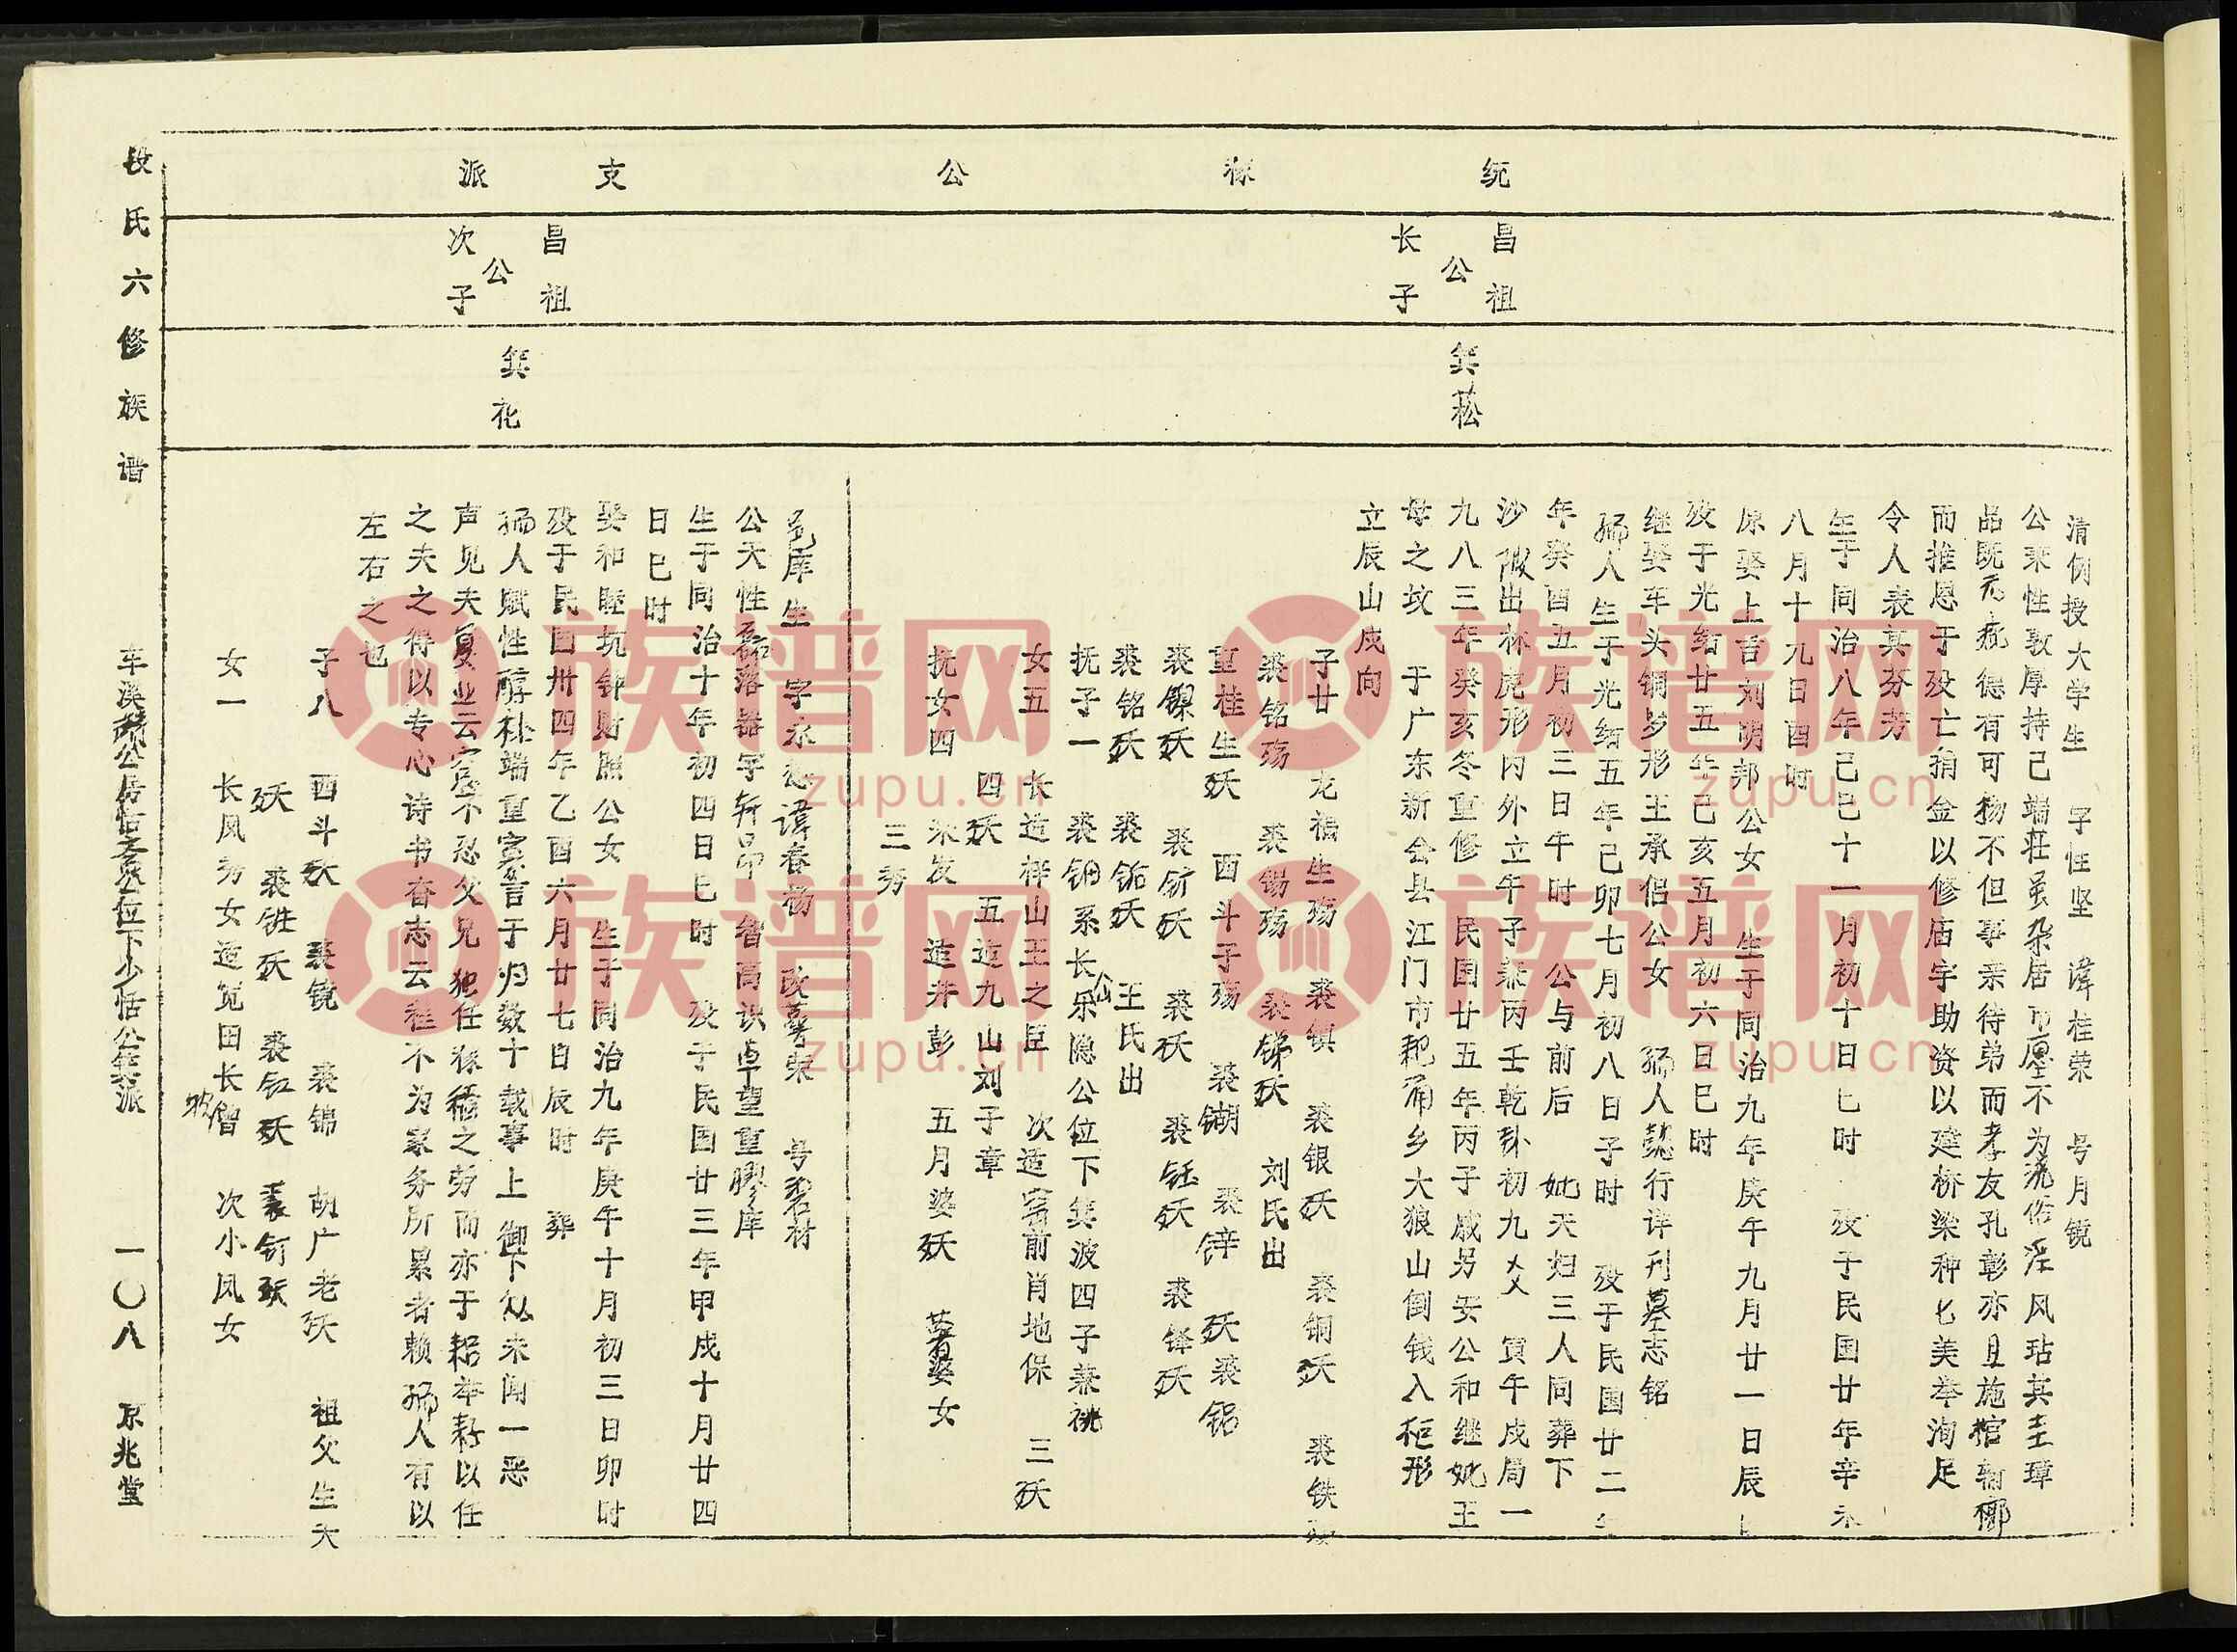 统 稼 公 支 派
昌祖
公
长子
箕菘
清例授大学生 字性坚 讳桂荣 号月镜
公秉性敦厚持己端荘虽杂居市廛不为流俗淫风玷其圭璋
品既无疵德有可扬不但事亲待弟而孝友孔彰亦且施棺
而推恩于殁亡捐金以修庙宇助资以建桥梁种匕美举洵足
令人表其芬芳
生于同治八年己巳十一月初十日巳时 殁于民国廿年辛未
八月十九日酉时
原娶上吉刘明邦公女 生于同治九年庚午九月廿一日辰
殁于光绪廿五年己亥五月初六日巳时
继娶车头铜岁形王承侣公女 孺人懿行详刊墓志铭
孺人生于光绪五年己卯七月初八日子时 殁于民国廿二
年癸酉五月初三日午时 公与前后 妣夫妇三人同葬下
沙 出林虎形内外立午子兼丙壬乾卦初九爻 寅午戌局一
九八三年癸亥冬重修 民国廿五年丙子戚男安公和继妣王
母之坟 于广东新会县江门市耙甬乡大狼山倒钱入柜形
立辰山戌向
子廿 龙福生殇 裘镇 裘银殀 裘铜殀 裘铁
裘铭殇 裘锡殇 裘锑殀 刘氏出
重桂生殀 酉斗子殇 裘锎 裘锌 殀裘铝
裘镍殀 裘钌殀 裘 殀 裘钰殀 裘锋殀
裘铭殀 裘 殀 王氏出
抚子一 裘钿系长乐隐公位下箕波四子兼祧
女五 长造样山王之臣 次适 前肖地保 三殀
四殀 五造九山刘子章
抚女四 米发 造井彭 五月婆殀 婆女
三秀
昌祖
公
次子
箕花
邑庠生 字永 讳春杨 改 荣 号 材
公天性磊落器宇轩昂 智高识卓望重胶庠
生于同治十年初四日巳时 殁于民国廿三年甲戌十月廿四
日巳时
娶和睦坑钟财照公女 生于同治九年庚午十月初三日卯时
殁于民国卅四年乙酉六月廿七日辰时 葬
孺人赋性醇朴端重寡言于归数十载事上御下从未闻一恶
声见夫夏业云 不忍父兄独任稼穑之劳而亦于耜举耔以任
之夫之得以专心诗书奋志云程不为家务所累者赖孺人有以
左右之也
子八 酉斗殀 裘镜 裘锦 胡广老殀 祖父生大
殀 裘 殀 裘钅工殀 裘钌殀
女一 长凤秀女造 田长 增 次小凤女
段氏六修族谱 车溪 公 位下少恬公箕派 一〇八 京兆堂
族谱网
zupu.cn
族谱网
zupu.cn
族谱网
zupu.cn
族谱网
zupu.cn